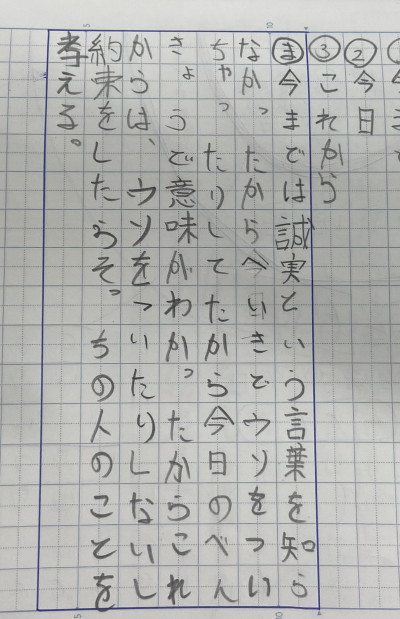 ②今日
③これから
ま今までは誠実という言葉を知ら
なかったから今いきでウソをつい
ちゃったりしてたから今日のべん
きょうで意味がわかったからこれ
からは、ウソをついたりしないし
約束をしたらそっちの人のことを
考える。